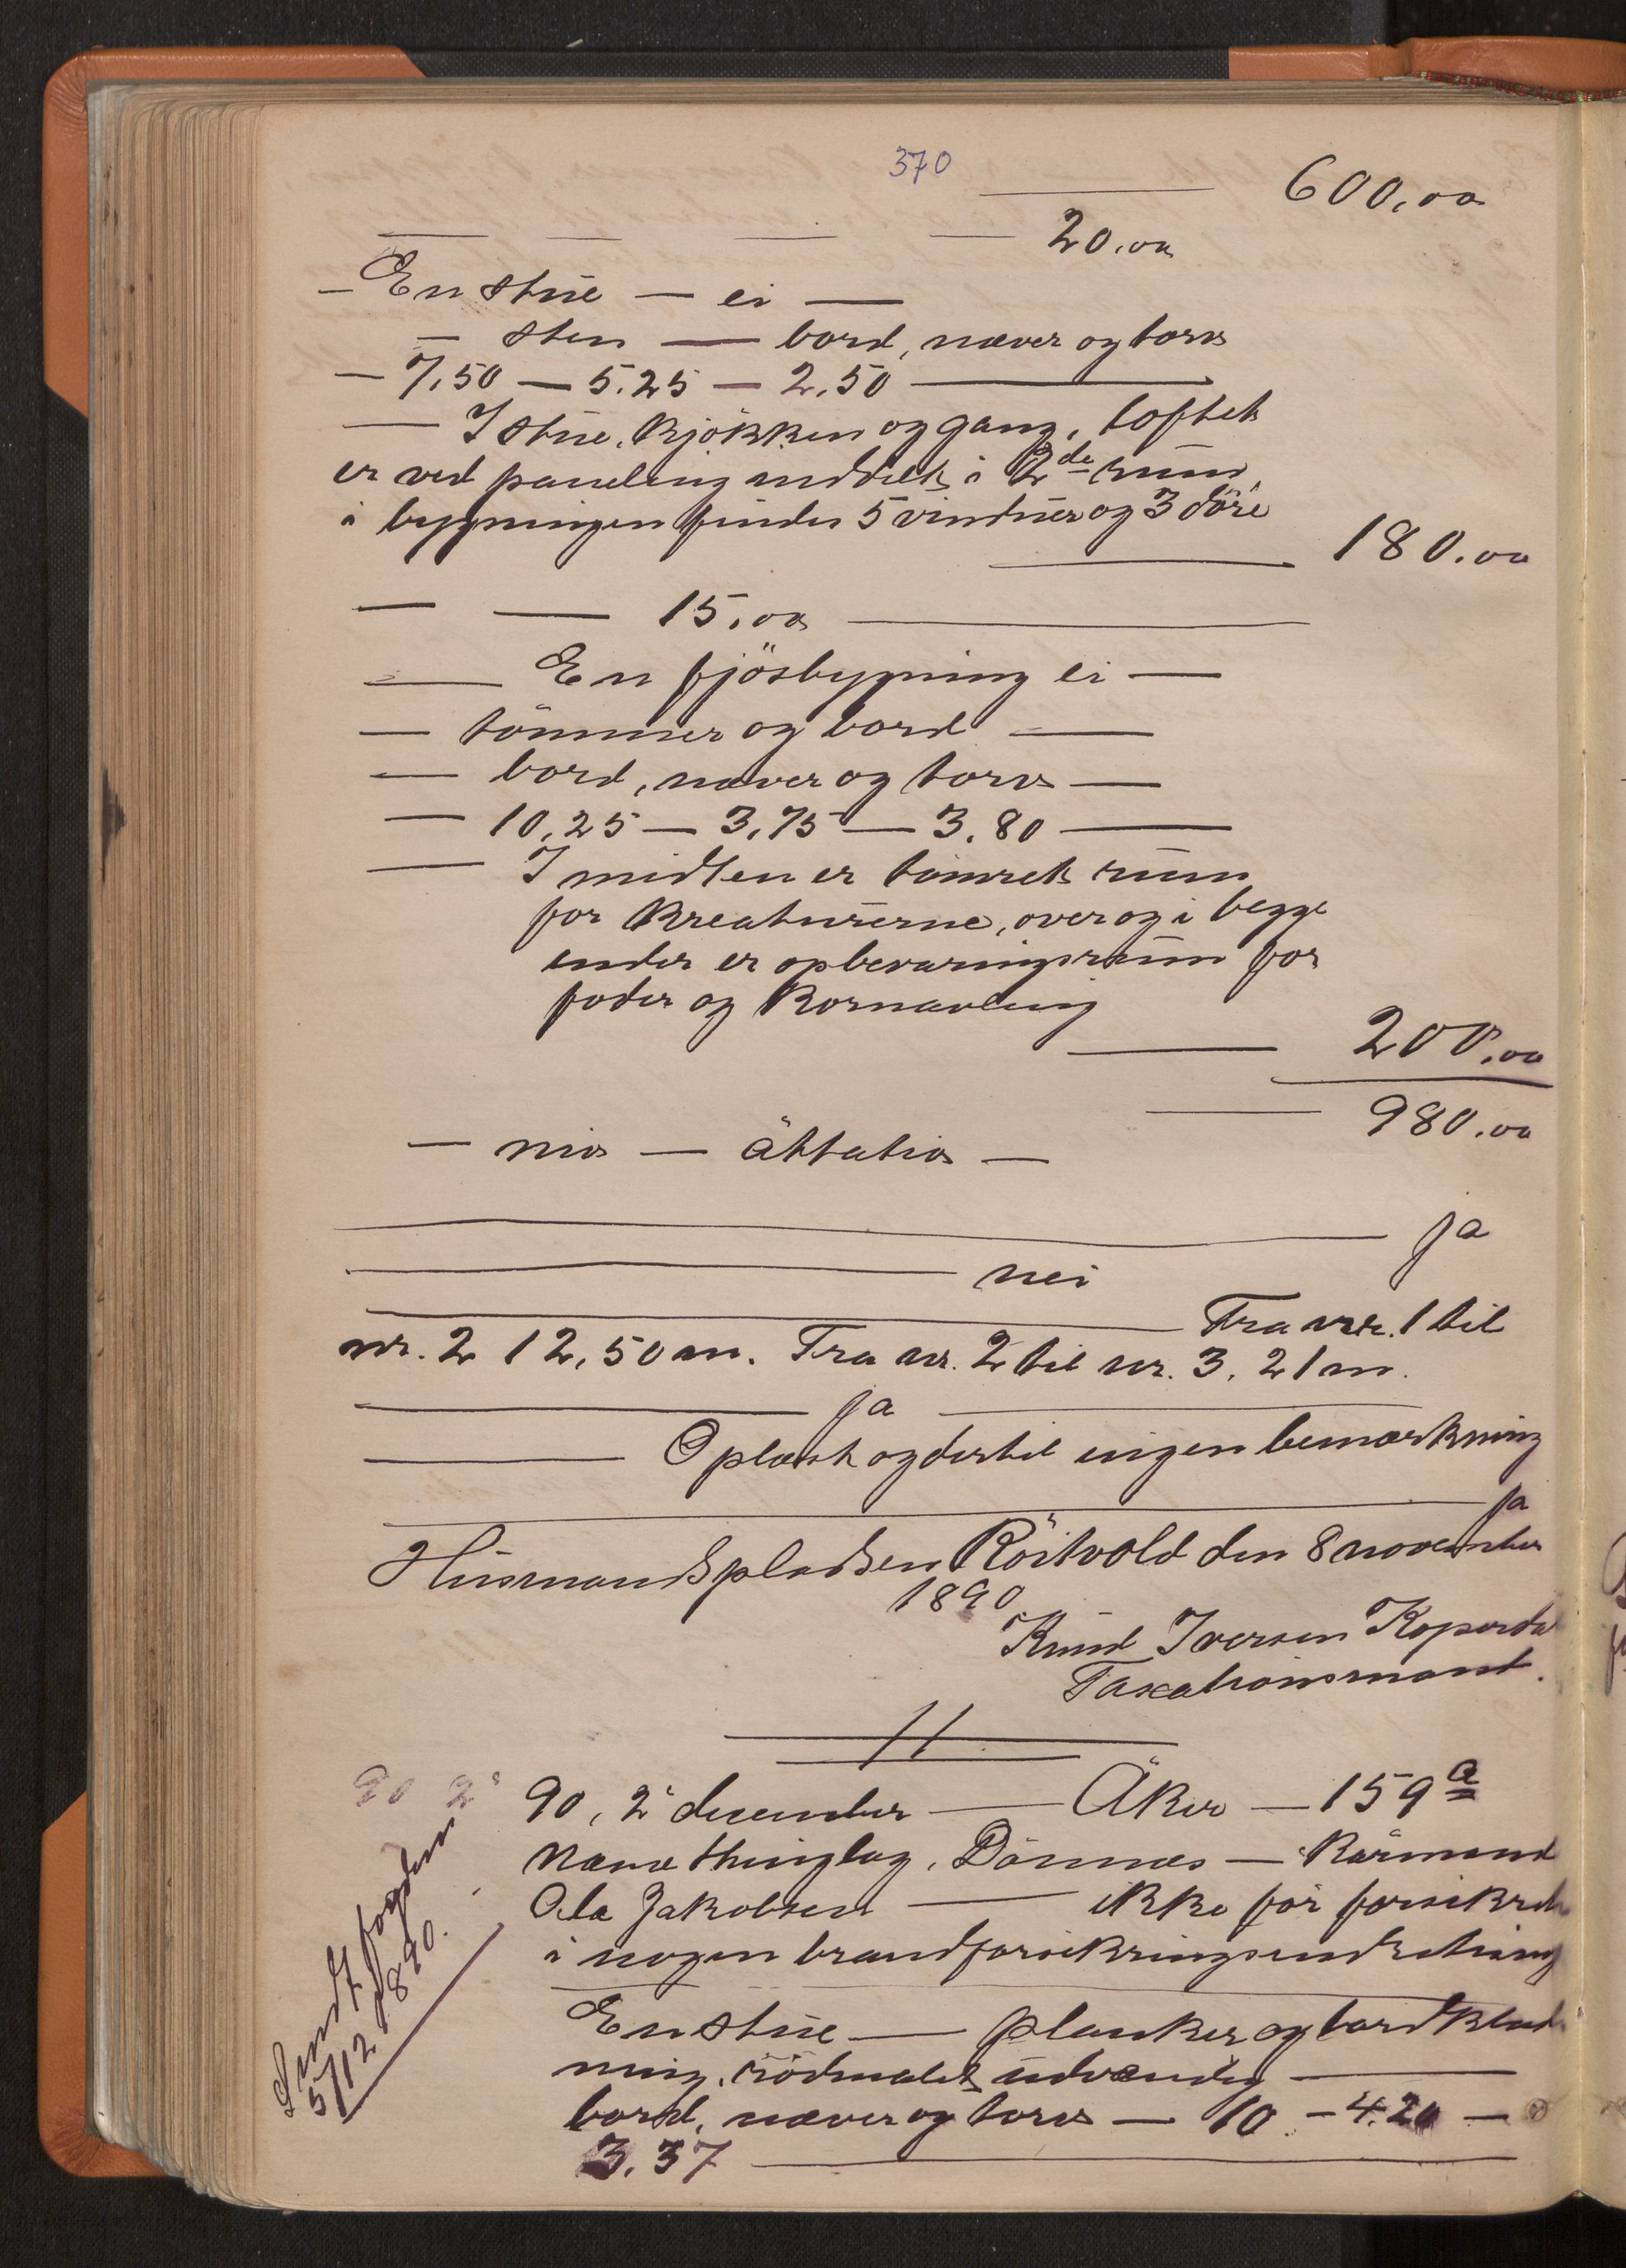 370
——— 600,00
— — — — 20,00
— En stue — ei —
— sten — bord, næver og torv
— 7,50 — 5.25 — 2,50 ———
— I stue, kjøkken og gang, loftet
er ved paneling inddelt i 2de rum,
i bygningen findes 5 vinduer og 3 döre
——— 180.00
— — 15,00 ———
— En fjösbygning ei —
— tömmer og bord —
— bord, næver og torv —
— 10,25 — 3,75 — 3.80 —
— I midten er tömret rum
for kreaturerne, over og i begge
ender er opbevaringsrum for
foder og kornavling
——— 200,00
——— 980.00
— ni — åttatio —
——— ja
——— nei
——— Fra nr. 1 til
nr. 2 12,50 m. Fra nr. 2 til nr. 3. 21 m.
——— ja ———
——— Oplæst og dertil ingen bemærkning
——— ja
Husmandspladsen Röitvold den 8 november
1890
Knud Iversen Kopardal
Taxationsmand.
90 2'
90, 2' december — Åker — 159 a
Næsna thinglag, Dönnæs — Kårmand
Ola Jakobsen — ikke før forsikret
i nogen brandforsikringsindretning
En stue — planker og bordklæd
ning, rödmalet udvendig —
bord, næver og torv — 10. — 4.20 —
3.37 ———
Sendt fogden
5/12 1890.